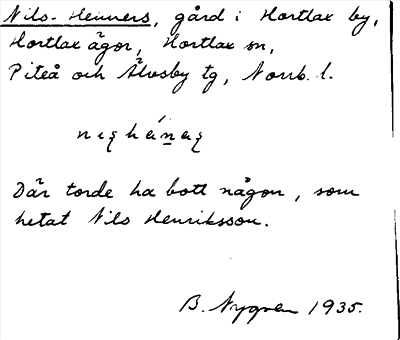 Nils-Heiners, gård i Hortlax by,
Hortlax ägor, Hortlax sn,
Piteå och Älvsby tg, Norrb. l.
Där torde ha bott någon, som
hetat Nils Henriksson.
B. Nygren 1935.